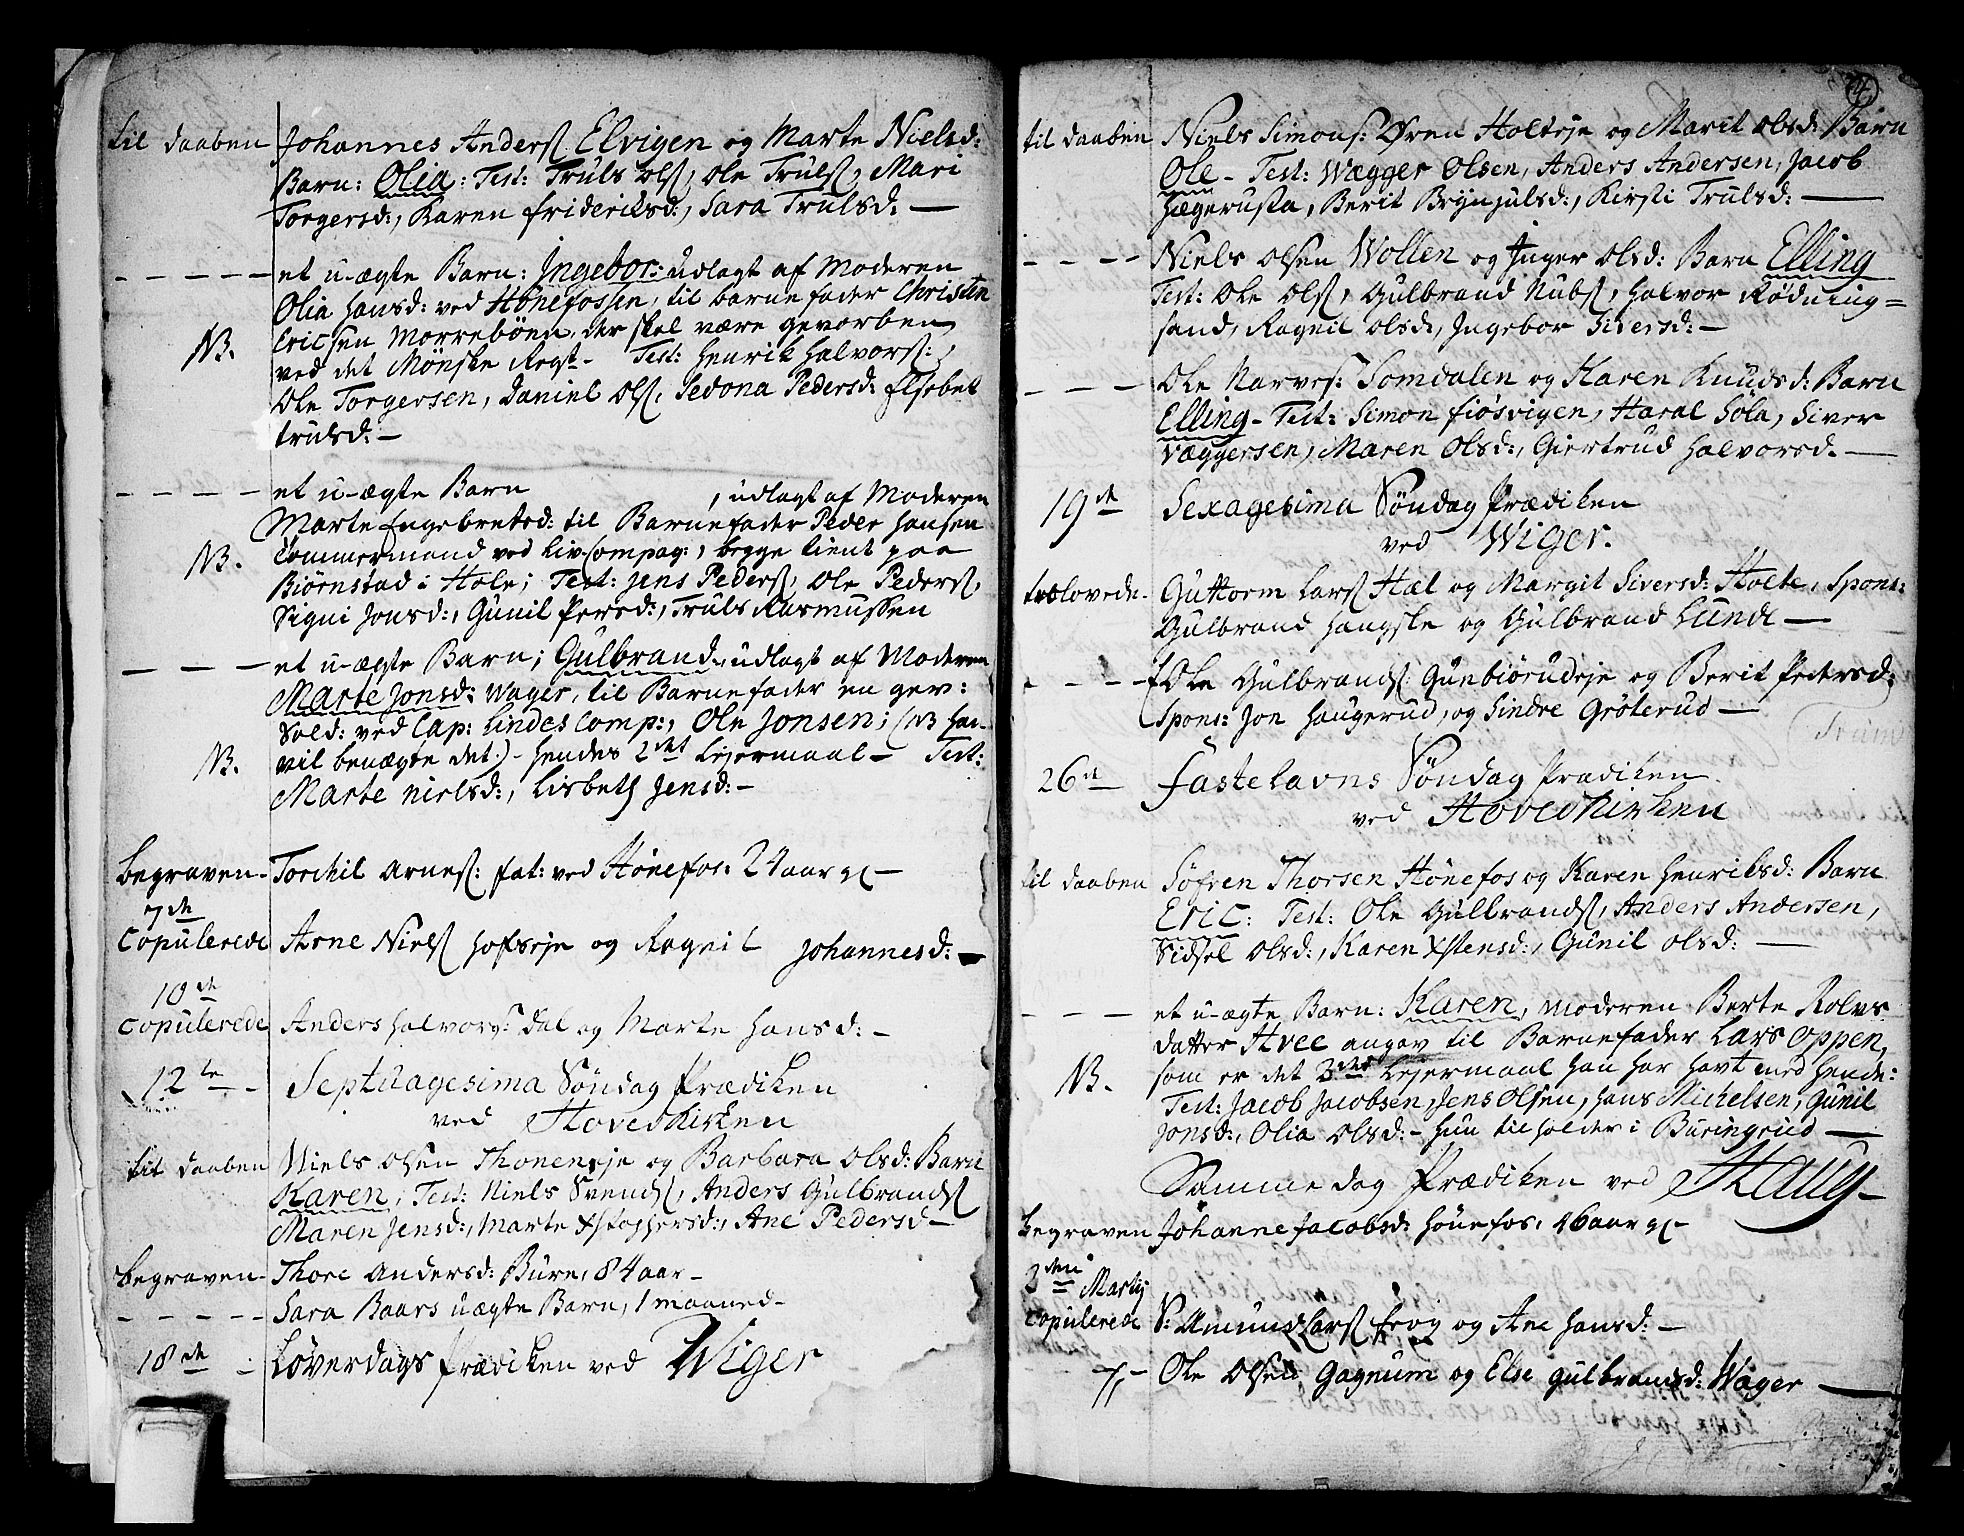 til daaben Johannes Anders: Elvigen og Marte Nielsd:
Barn: Olia: Test: Truls Ols:, Ole Truls:, Mari
Torgersd:, Karen frideriksd:, Sara Trulsd: —
– – – – – et u-ægte Barn: Ingebor: udlagt af Moderen
Olia Hansd: ved Hönefossen, til barnefader Christen
NB. Ericsen Morreböen, der skal være gevorben
ved det Mönske Regt – Test: Henrik Halvors:,
Ole Torgersen, Daniel Ols:, Sedona Pedersd: Elsebet
trulsd: –
– – – – et u-ægte Barn , udlagt af Moderen
Marte Engebretsd: til Barnefader Peder Hansen
NB. Tommermand ved Liv Compag:, begge tient paa
Biørnstad i Hole; Test: Jens Peders:, Ole Peders:,
Signi Jonsd:, Gunil Persd:, Truls Rasmussen
– – – – et u-ægte Barn; Gulbrand, udlagt af Moderen
Marte Jonsd: Wager, til Barnefader en gev:
Sold: ved Cap: Lindes Comp:, Ole Jonsen; (NB Han
NB. vil benægte det.) – hendes 2det Lejermaal – Test:
Marte Nielsd:, Lisbeth Jensd: –
begraven – Torchil Arnes: fat: ved Hönefos: 24 aar gl –
7de
Copulerede Arne Niels: Hofseje og Ragnil Johannesd: –
10de
Copulerede Anders Halvors: Dal og Marte Hansd: –
12te – Septuagesima Söndag Prædiken
ved Hovedkirken
til daaben Niels Olsen Thoneneje og Barbara Olsd: Barn
Karen, Test: Niels Svends:, Anders Gulbrands:
Maren Jensd:, Marte Xstophersd:, Ane Pedersd –
begraven – Thore Andersd: Bure, 84 aar –
– – – – – Sara Baars uægte Barn, 1 maaned –
18de – Löverdags Prædiken ved Wiger
til daaben Niels Simons: Øren Holteje og Marit Olsd: Barn
Ole – Test: Wægger Olsen, Anders Andersen, Jacob
Hægerusta, Berit Brynjulsd:, Kirsti Trulsd: —
– – – – Niels Olsen Wollen og Inger Olsd: Barn Elling
Test: Ole Ols:, Gulbrand Nubs:, Halvor Rødning=
sand, Ragnil Olsd:, Ingebor Siversd: –
– – – – Ole Narves: Somdalen og Karen Knudsd: Barn
Elling – Test: Simon fiösvigen, Haral Söla, Siver
Væggersen, Maren Olsd:, Giertrud Halvorsd. —
19de Sexagesima Söndag Prædiken
ved Wiger.
trolovede. Guttorm Lars: Hæl og Margit Siversd: Holte, Spons:
Gulbrand Haugsle og Gulbrand Lunde —
– – – – Ole Gulbrands: Gunbiörudeje og Berit Pedersd:
Spons: Jon Haugerud, og Sindre Gröterud —
26de Fastelavns Söndag Prædiken
ved Hovedkirken
til daaben Söfren Thorsen Hönefos og Karen Henriksd: Barn
Eric: Test: Ole Gulbrands:, Anders Andersen,
Sidsel Olsd:, Karen Xstensd:, Gunil Olsd: —
– – – et u-ægte Barn: Karen, Moderen Berte Rolvs
datter Hvee angav til Barnefader Lars Oppen,
NB. som er det 3die Lejermaal han har havt med hende:
Test: Jacob Jacobsen, Jens Olsen, Hans Michelsen, Gunil
Jonsd:, Olia Olsd: – Hun tilholder i Buringrud —
Samme dag Prædiken ved Haug –
begraven Johanne Jacobsd: Hönefos, 46 aar gl –
3den Martij
Copulerede S: Amund Lars: Frog og Ane Hansd: –
7, – Ole Olsen Gagnum og Else Gulbrandsd: Wager —